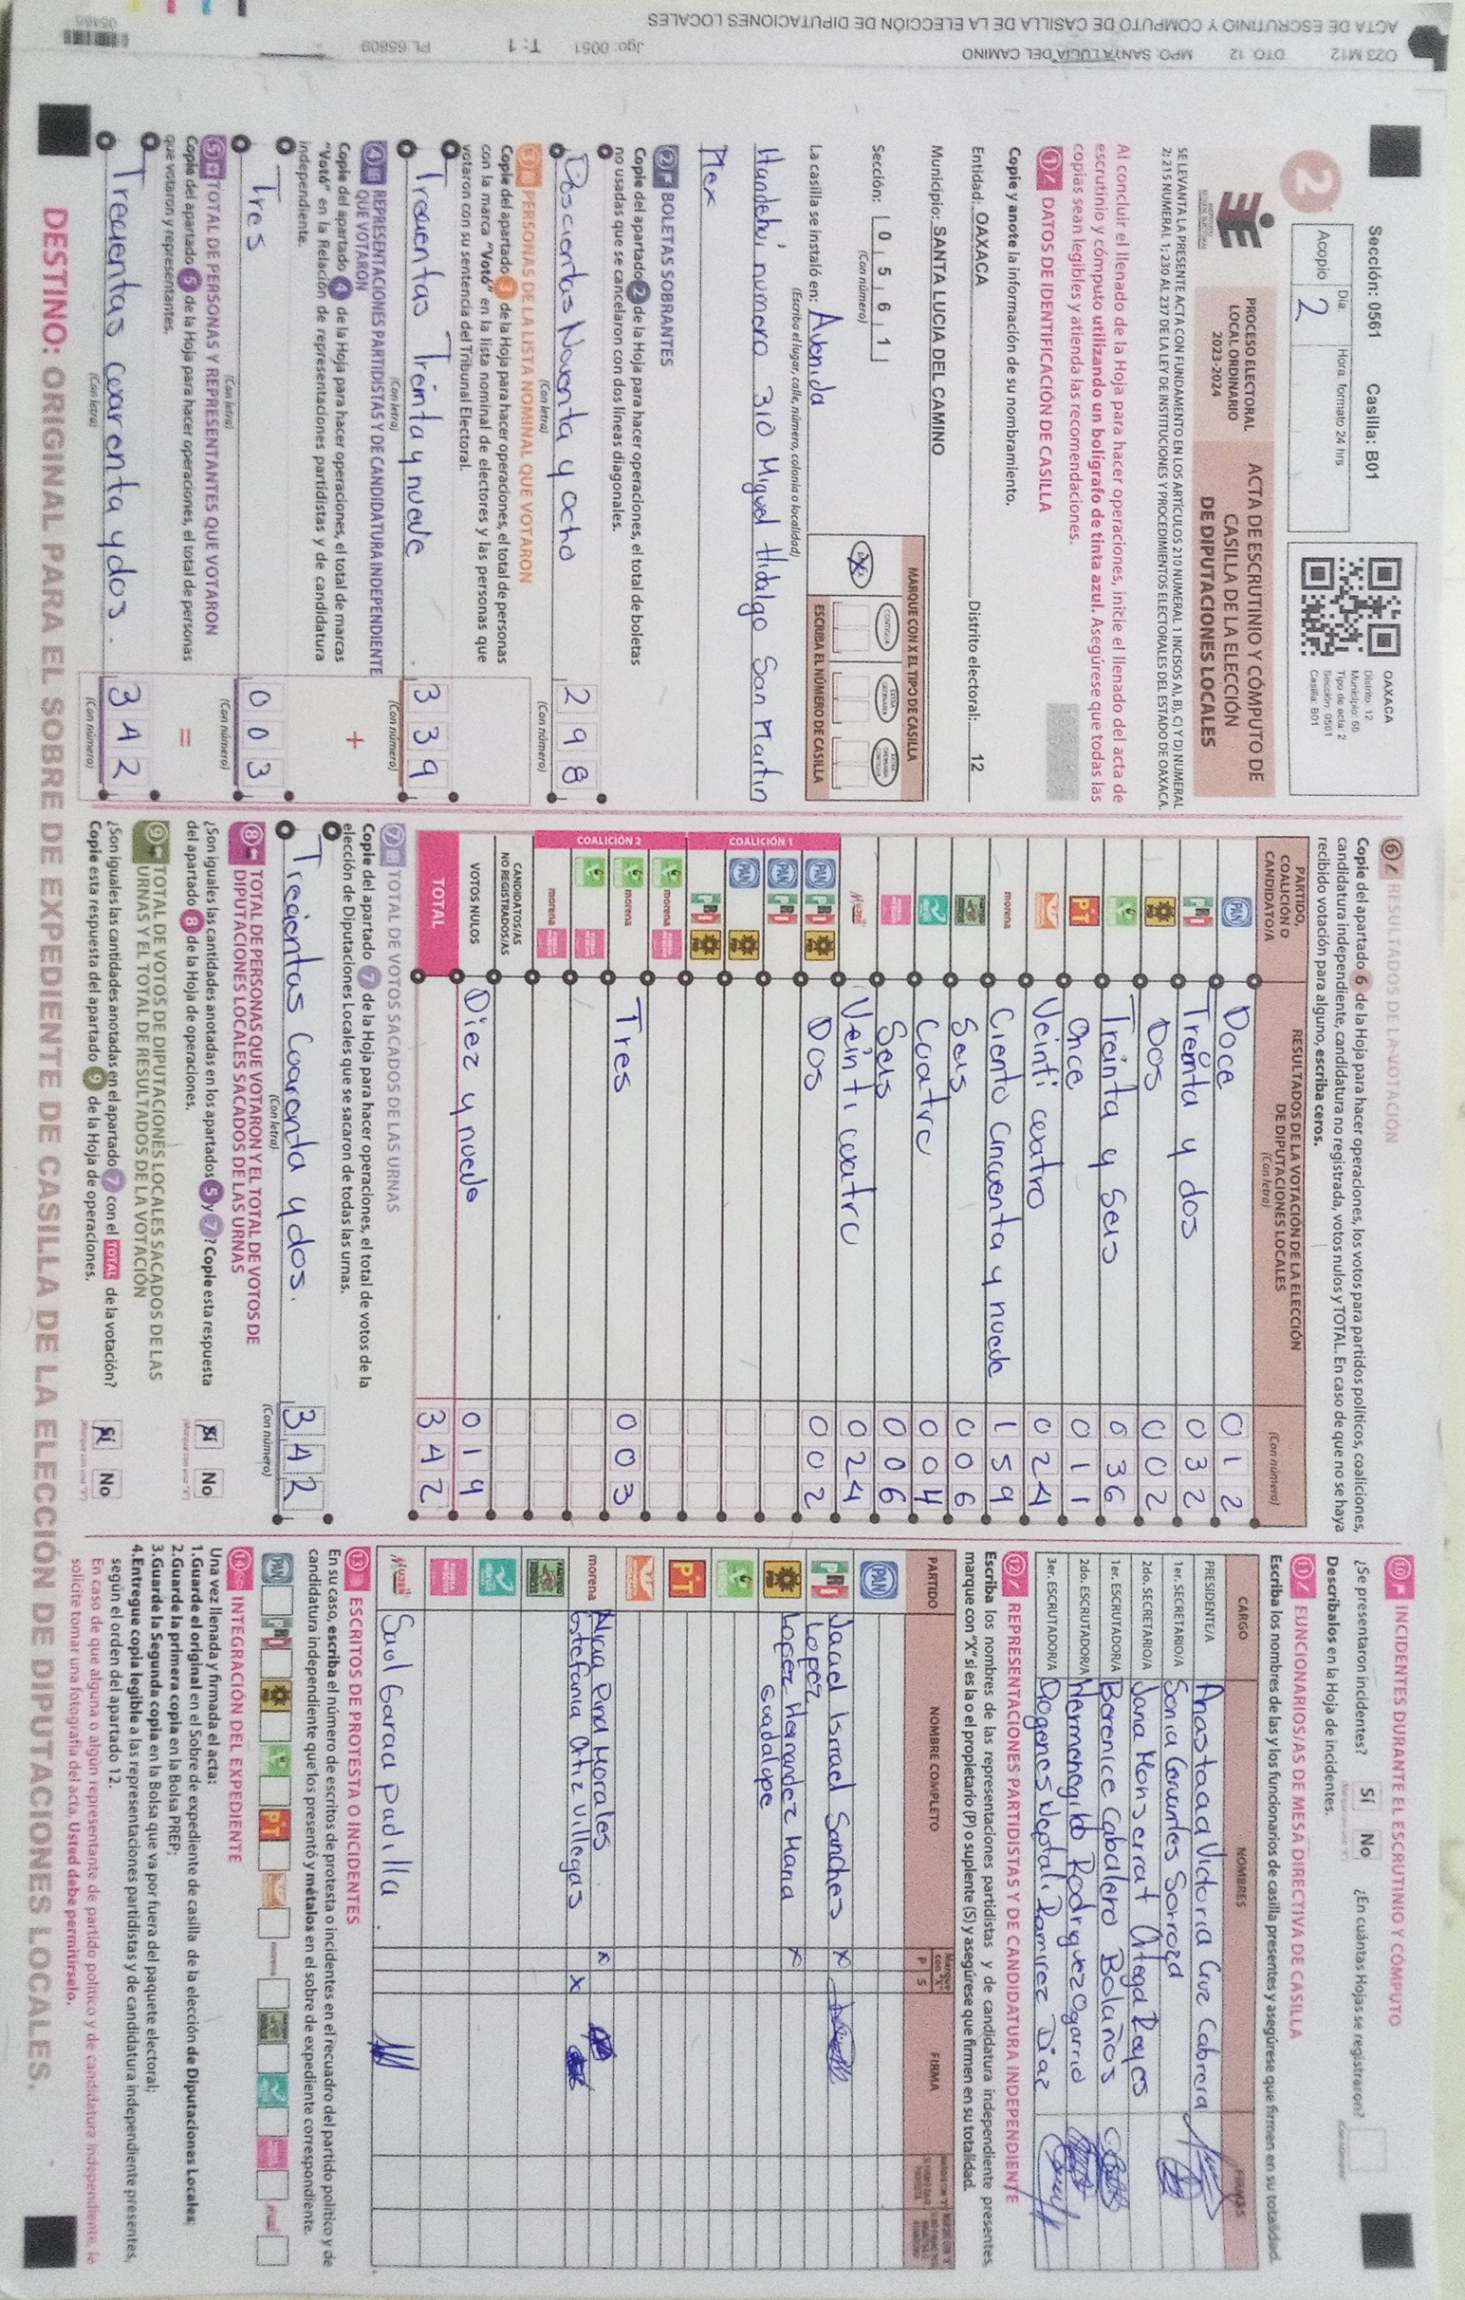 OZ3 M12 DTO. 12 MPO. SANTA LUCIA DEL CAMINO Jgo: 0051 T: 1 PL 65809
ACTA DE ESCRUTINIO Y COMPUTO DE CASILLA DE LA ELECCIÓN DE DIPUTACIONES LOCALES
Sección: 0561 Casilla: B01
2
Día: Hora: formato 24 hrs
Acopio 2
OAXACA
Distrito: 12
Municipio: 68
Tipo de acta: 2
Sección: 0561
Casilla: B01
PROCESO ELECTORAL
LOCAL ORDINARIO
2023-2024
ACTA DE ESCRUTINIO Y CÓMPUTO DE
CASILLA DE LA ELECCIÓN
DE DIPUTACIONES LOCALES
SE LEVANTA LA PRESENTE ACTA CON FUNDAMENTO EN LOS ARTÍCULOS 210 NUMERAL 1 INCISOS A), B), C) Y D) NUMERAL
2; 215 NUMERAL 1; 230 AL 237 DE LA LEY DE INSTITUCIONES Y PROCEDIMIENTOS ELECTORALES DEL ESTADO DE OAXACA.
Al concluir el llenado de la Hoja para hacer operaciones, inicie el llenado del acta de
escrutinio y cómputo utilizando un bolígrafo de tinta azul. Asegúrese que todas las
copias sean legibles y atienda las recomendaciones.
1 DATOS DE IDENTIFICACIÓN DE CASILLA
Copie y anote la información de su nombramiento.
Entidad: OAXACA Distrito electoral: 12
Municipio: SANTA LUCIA DEL CAMINO
Sección: 0 5 6 1
(Con número)
MARQUE CON X EL TIPO DE CASILLA
CONTIGUA
ESCRIBA EL NÚMERO DE CASILLA
La casilla se instaló en: Avenida
(Escriba el lugar, calle, número, colonia o localidad)
numero 310 Miguel Hidalgo San Martin
Mex
2 BOLETAS SOBRANTES
Copie del apartado 2 de la Hoja para hacer operaciones, el total de boletas
no usadas que se cancelaron con dos líneas diagonales.
Doscientas Noventa y ocho 2 9 8
(Con letra) (Con número)
3 PERSONAS DE LA LISTA NOMINAL QUE VOTARON
Copie del apartado 3 de la Hoja para hacer operaciones, el total de personas
con la marca "Votó" en la lista nominal de electores y las personas que
votaron con su sentencia del Tribunal Electoral.
Trecientas Treinta y nueve 3 3 9
(Con letra) (Con número)
4 REPRESENTACIONES PARTIDISTAS Y DE CANDIDATURA INDEPENDIENTE
QUE VOTARON
Copie del apartado 4 de la Hoja para hacer operaciones, el total de marcas
"Votó" en la Relación de representaciones partidistas y de candidatura
independiente.
+
Tres 0 0 3
(Con letra) (Con número)
5 TOTAL DE PERSONAS Y REPRESENTANTES QUE VOTARON
Copie del apartado 5 de la Hoja para hacer operaciones, el total de personas
que votaron y representantes.
=
Trecientas cuarenta y dos. 3 4 2
(Con letra) (Con número)
6 RESULTADOS DE LA VOTACIÓN
Copie del apartado 6 de la Hoja para hacer operaciones, los votos para partidos políticos, coaliciones,
candidatura independiente, candidatura no registrada, votos nulos y TOTAL. En caso de que no se haya
recibido votación para alguno, escriba ceros.
PARTIDO,
COALICIÓN O
CANDIDATO/A
RESULTADOS DE LA VOTACIÓN DE LA ELECCIÓN
DE DIPUTACIONES LOCALES
(Con letra) (Con número)
PAN Doce 0 1 2
PRI Treinta y dos 0 3 2
PRD Dos 0 0 2
Treinta y Seis 0 3 6
PT Once 0 1 1
Veinti cuatro 0 2 4
morena Ciento Cincuenta y nueve 1 5 9
Seis 0 0 6
Cuatro 0 0 4
Seis 0 0 6
Veinti cuatro 0 2 4
COALICIÓN 1
PAN PRI PRD Dos 0 0 2
PAN PRI
PAN PRD
PRI PRD
COALICIÓN 2
morena
morena Tres 0 0 3
morena
CANDIDATOS/AS
NO REGISTRADOS/AS
VOTOS NULOS Diez y nueve 0 1 9
TOTAL 3 4 2
7 TOTAL DE VOTOS SACADOS DE LAS URNAS
Copie del apartado 7 de la Hoja para hacer operaciones, el total de votos de la
elección de Diputaciones Locales que se sacaron de todas las urnas.
Trecientas Cuarenta y dos. 3 4 2
(Con letra) (Con número)
8 TOTAL DE PERSONAS QUE VOTARON Y EL TOTAL DE VOTOS DE
DIPUTACIONES LOCALES SACADOS DE LAS URNAS
¿Son iguales las cantidades anotadas en los apartados 5 y 7? Copie esta respuesta
del apartado 8 de la Hoja de operaciones.
Sí No
9 TOTAL DE VOTOS DE DIPUTACIONES LOCALES SACADOS DE LAS
URNAS Y EL TOTAL DE RESULTADOS DE LA VOTACIÓN
¿Son iguales las cantidades anotadas en el apartado 7 con el TOTAL de la votación?
Copie esta respuesta del apartado 9 de la Hoja de operaciones.
Sí No
10 INCIDENTES DURANTE EL ESCRUTINIO Y CÓMPUTO
¿Se presentaron incidentes? Sí No ¿En cuántas Hojas se registraron?
Descríbalos en la Hoja de incidentes.
11 FUNCIONARIOS/AS DE MESA DIRECTIVA DE CASILLA
Escriba los nombres de las y los funcionarios de casilla presentes y asegúrese que firmen en su totalidad.
CARGO NOMBRES FIRMAS
PRESIDENTE/A Anastacia Victoria Cruz Cabrera
1er. SECRETARIO/A Sonia Cervantes Sorroza
2do. SECRETARIO/A Jana Monserrat Ortega Reyes
1er. ESCRUTADOR/A Berenice Caballero Bolaños
2do. ESCRUTADOR/A Hermenegildo Rodriguez Ogarrio
3er. ESCRUTADOR/A Diogenes Neptali Ramirez Diaz
12 REPRESENTACIONES PARTIDISTAS Y DE CANDIDATURA INDEPENDIENTE
Escriba los nombres de las representaciones partidistas y de candidatura independiente presentes,
marque con "X" si es la o el propietario (P) o suplente (S) y asegúrese que firmen en su totalidad.
PARTIDO NOMBRE COMPLETO Marque con "X" P S FIRMA
PAN
PRI Jacael Israel Sanches Lopez x
PRD Lopez Hernandez Maria Guadalupe x
PT
morena Piña Morales x
Estefania Ortiz Villegas x
Saul Garcia Padilla.
13 ESCRITOS DE PROTESTA O INCIDENTES
En su caso, escriba el número de escritos de protesta o incidentes en el recuadro del partido político y de
candidatura independiente que los presentó y métalos en el sobre de expediente correspondiente.
PAN PRI PRD PT morena
14 INTEGRACIÓN DEL EXPEDIENTE
Una vez llenada y firmada el acta:
1.Guarde el original en el Sobre de expediente de casilla de la elección de Diputaciones Locales;
2.Guarde la primera copia en la Bolsa PREP;
3.Guarde la Segunda copia en la Bolsa que va por fuera del paquete electoral;
4.Entregue copia legible a las representaciones partidistas y de candidatura independiente presentes,
según el orden del apartado 12.
En caso de que alguna o algún representante de partido político y de candidatura independiente, le
solicite tomar una fotografía del acta, Usted debe permitírselo.
DESTINO: ORIGINAL PARA EL SOBRE DE EXPEDIENTE DE CASILLA DE LA ELECCIÓN DE DIPUTACIONES LOCALES.